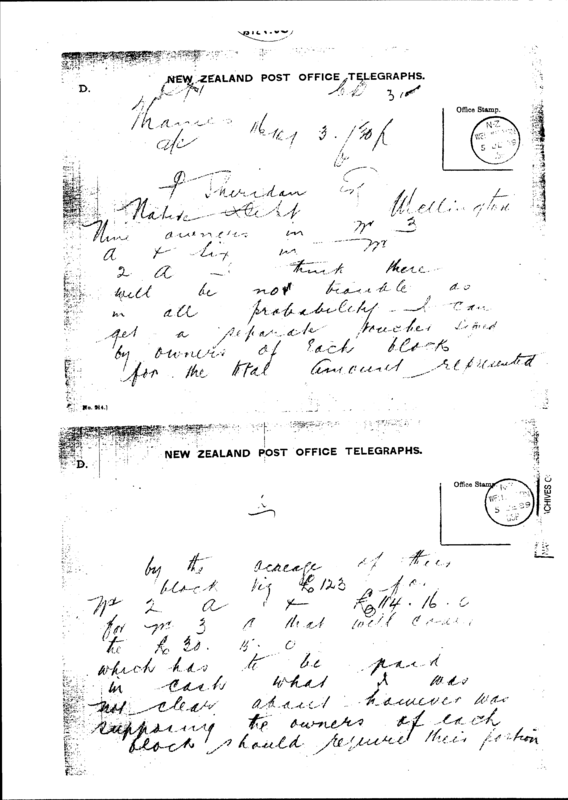 D.
NEW ZEALAND POST OFFICE TELEGRAPHS.
3
Office Stamp.
Thames 3.
N.Z
5 JL 99
P Sheridan Esq
Native Dept Wellington
Nine owners in No 3
A & six in No
2 A — I think there
will be no trouble as
in all probability I can
get a separate voucher signed
by owners of each block
for the total amount represented
No. 9(4.)
D.
NEW ZEALAND POST OFFICE TELEGRAPHS.
Office Stamp
N.Z
5 JL 99
ARCHIVES
2
by the acreage of their
block viz £123 for
No 2 A & £114.16.0
for No 3 A that will cover
the £30. 15. 0
which has to be paid
in cash what I was
not clear about however was
supposing the owners of each
block should require their portion